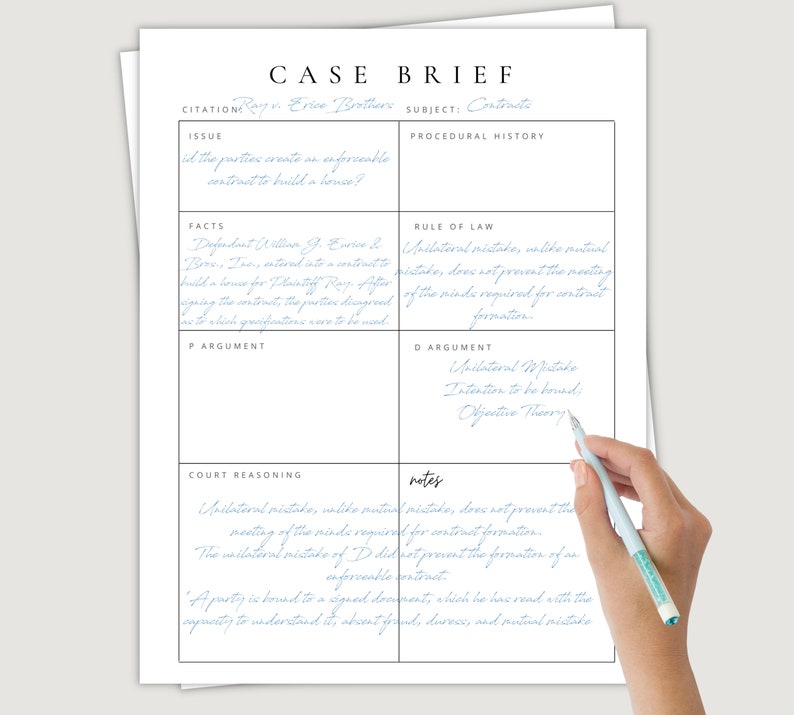 CASE BRIEF
CITATION: Ray v. Erice Brothers SUBJECT: Contracts
ISSUE
id the parties create an enforceable
contract to build a house?
PROCEDURAL HISTORY
FACTS
Defendant William G. Eurice &
Bros., Inc., entered into a contract to
build a house for Plaintiff Ray. After
signing the contract, the parties disagreed
as to which specifications were to be used.
RULE OF LAW
Unilateral mistake, unlike mutual
mistake, does not prevent the meeting
of the minds required for contract
formation.
P ARGUMENT
D ARGUMENT
Unilateral Mistake
Intention to be bound;
Objective Theory
COURT REASONING
notes
Unilateral mistake, unlike mutual mistake, does not prevent the
meeting of the minds required for contract formation.
The unilateral mistake of D did not prevent the formation of an
enforceable contract.
"A party is bound to a signed document, which he has read with the
capacity to understand it, absent fraud, duress, and mutual mistake